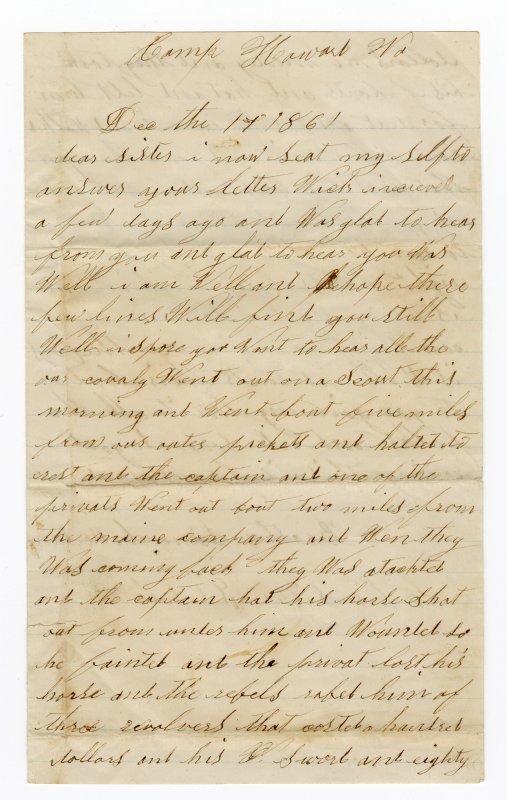 Camp Howart Va
Dec the 17 1861
dear sister i now seat my self to
answer your letter Wich i recievd
a few days ago ant Was glat to hear
from you ant glat to hear you Was
Well i am Well ant hope these
few lines Will fint you still
Well i spose you Want to hear all the
our covaly Went out on a scout this
morning ant Went bout five miles
from our outes pickets ant haltet to
rest ant the captain ant one of the
privats Went out bout two miles from
the maine company ant Wen they
Was coming back they Was atacktet
ant the captain hat his horse shot
out from unter him ant Wountet so
he faintet ant the privat lost his
horse ant the rebels robet him of
three revolvers that costet a huntret
dollars ant his swort ant eighty